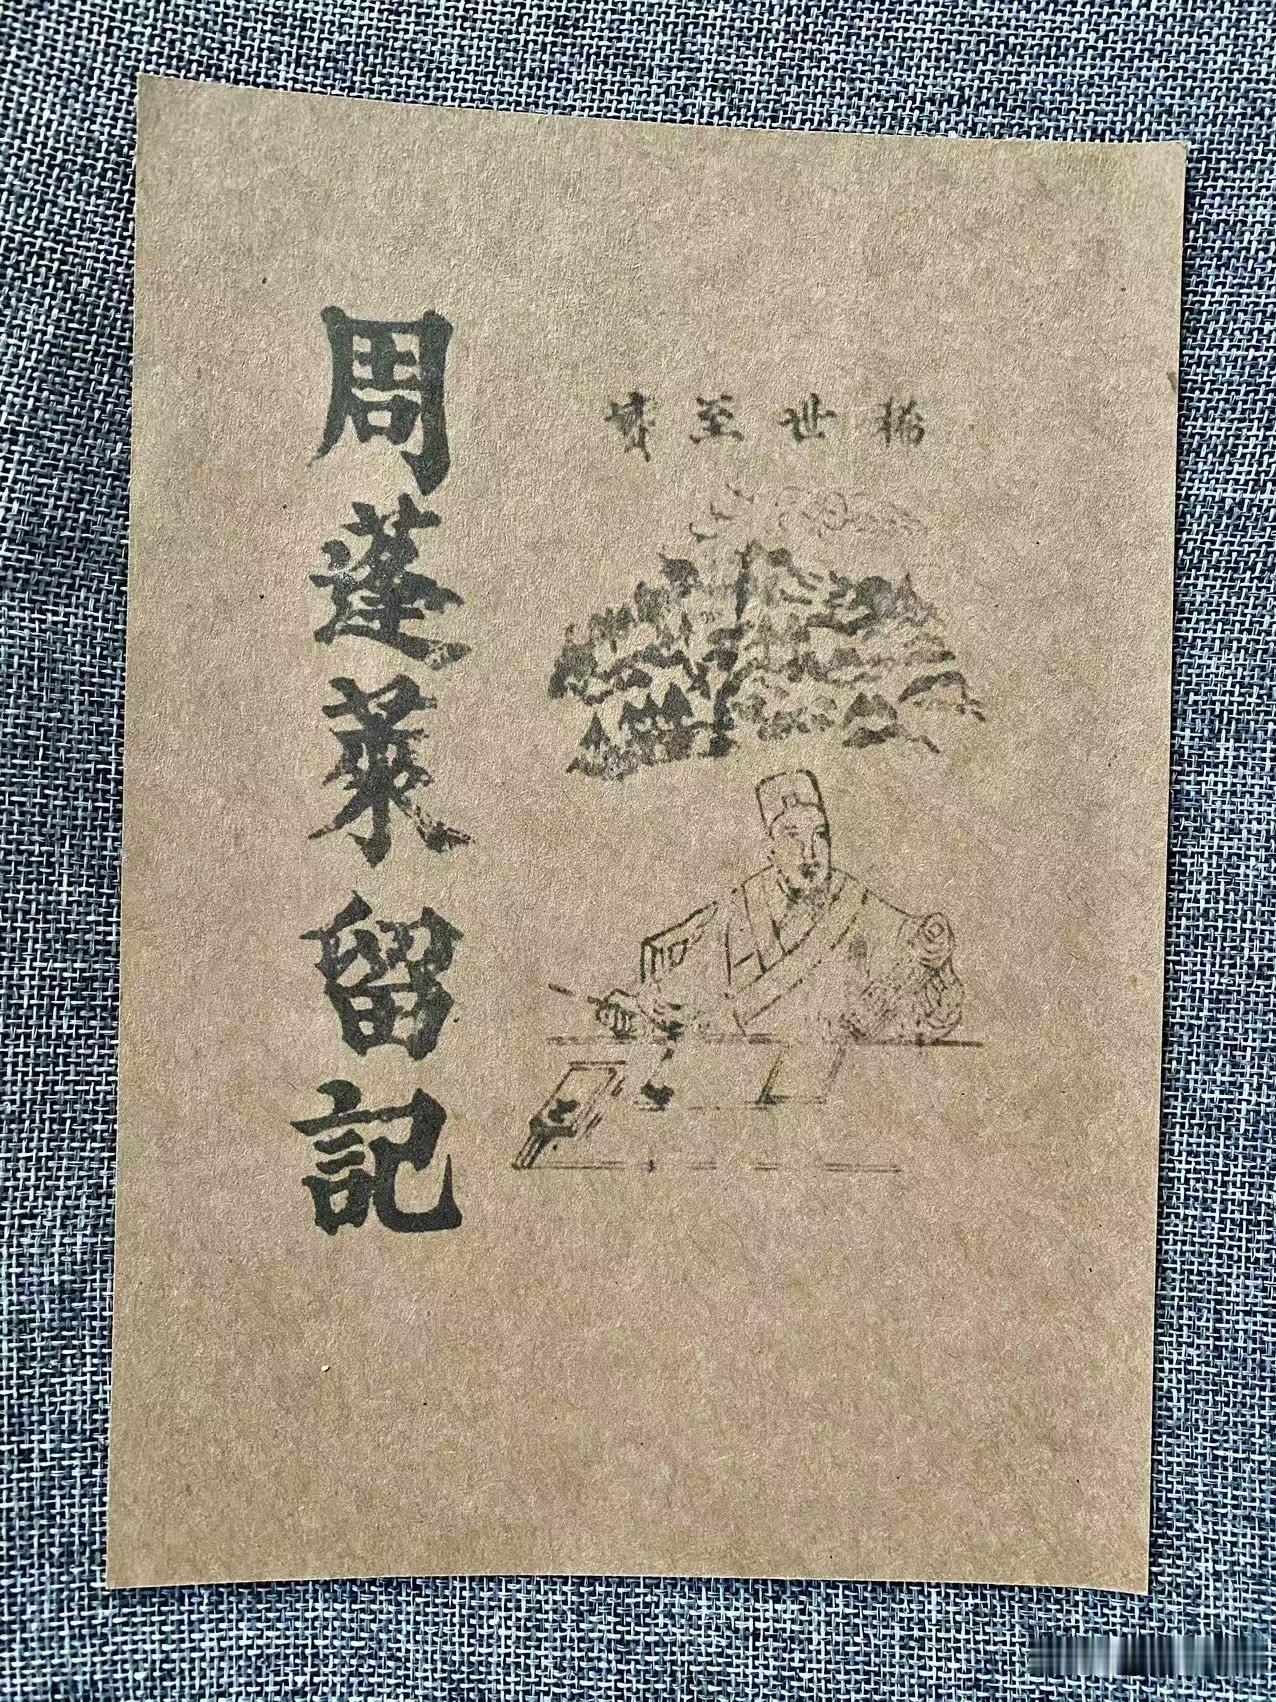 稀世至
周蓬萊留記